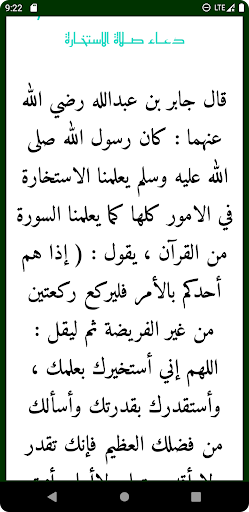 9:22
LTE
دعاء صلاة الاستخارة
قال جابر بن عبدالله رضي الله
عنهما : كان رسول الله صلى
الله عليه وسلم يعلمنا الاستخارة
في الامور كلها كما يعلمنا السورة
من القرآن ، يقول : ( إذا هم
أحدكم بالأمر فليركع ركعتين
من غير الفريضة ثم ليقل :
اللهم إني أستخيرك بعلمك ،
وأستقدرك بقدرتك وأسألك
من فضلك العظيم فإنك تقدر